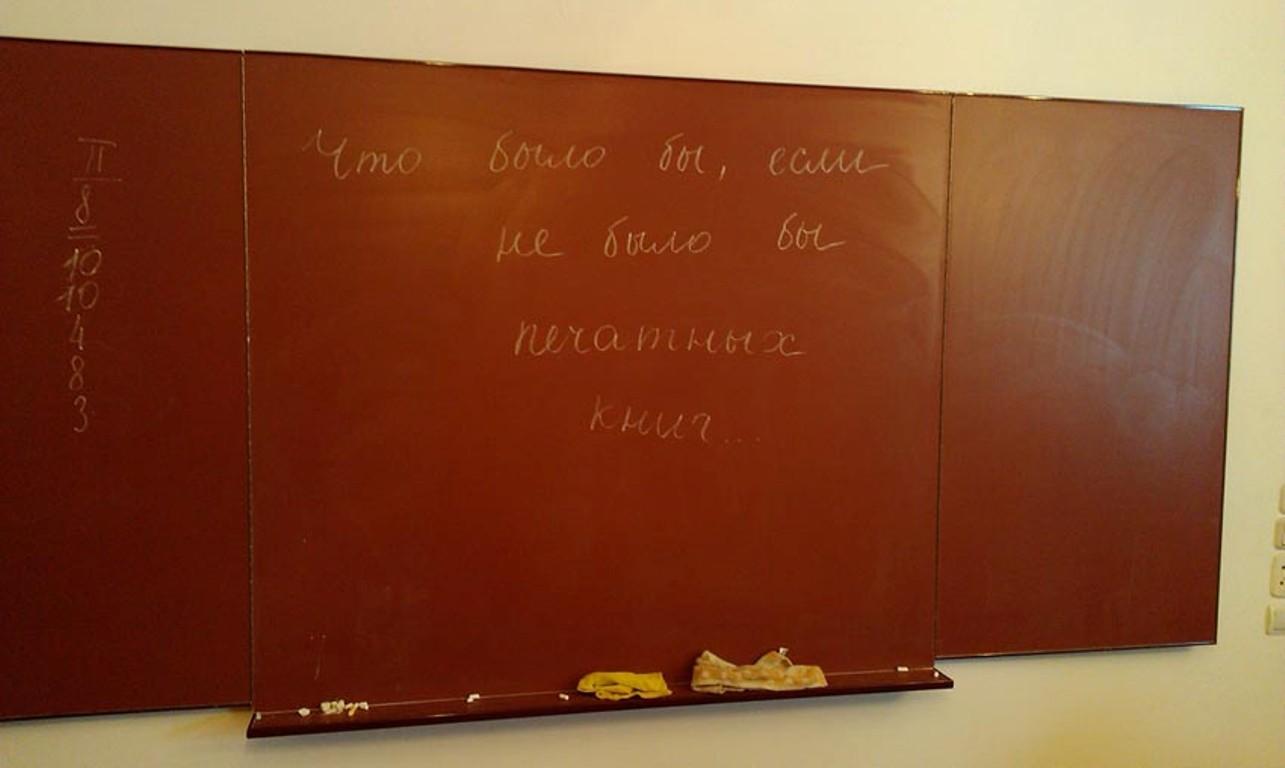 II
8
10
10
4
8
3
Что было бы, если
не было бы
печатных
книг...